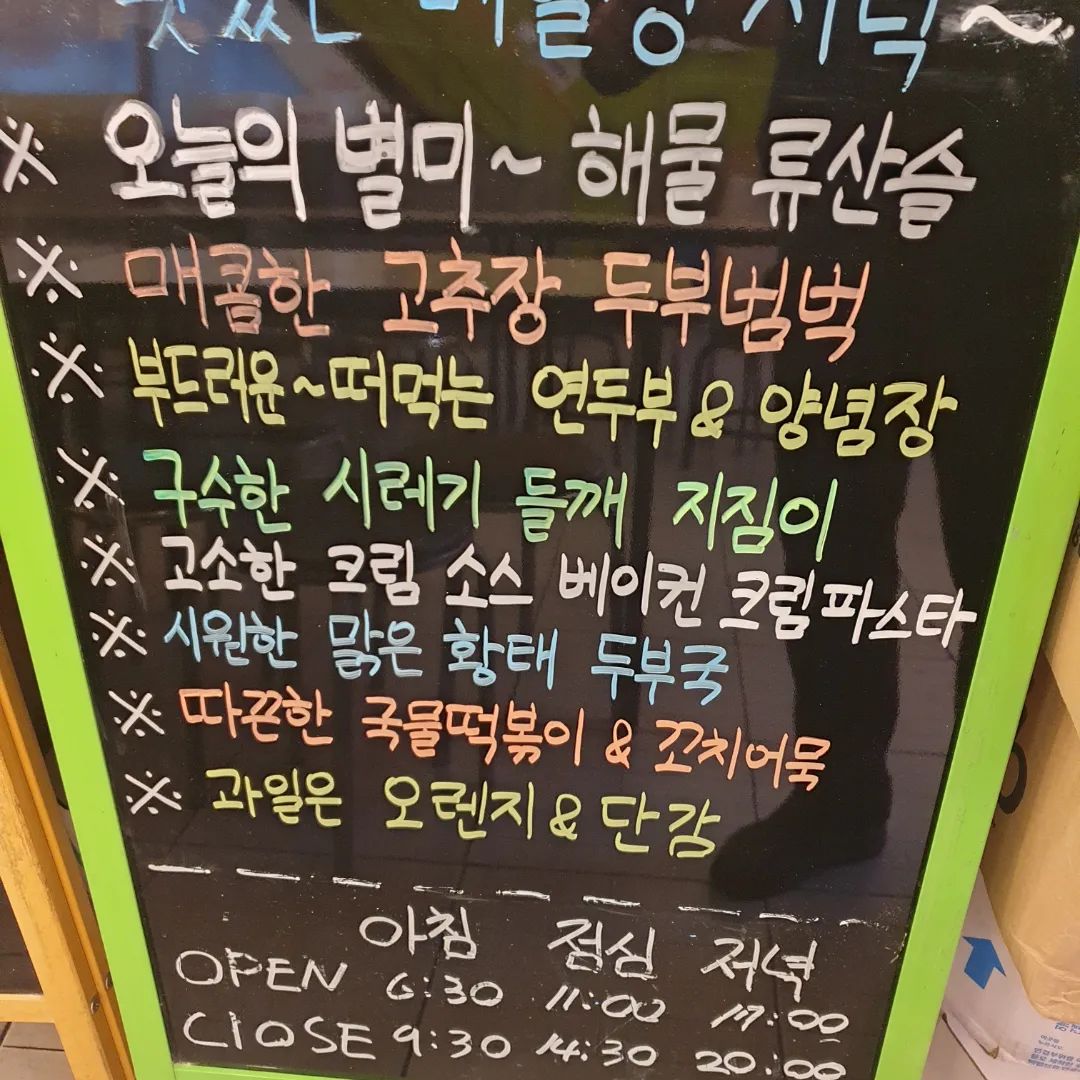 맛있는 비발향 저녁~
※ 오늘의 별미~ 해물 류산슬
※ 매콤한 고추장 두부범벅
※ 부드러운~떠먹는 연두부 & 양념장
※ 구수한 시레기 들깨 지짐이
※ 고소한 크림 소스 베이컨 크림파스타
※ 시원한 맑은 황태 두부국
※ 따끈한 국물떡볶이 & 꼬치어묵
※ 과일은 오렌지 & 단감
아침 점심 저녁
OPEN 6:30 11:00 17:00
ClOSE 9:30 14:30 20:00